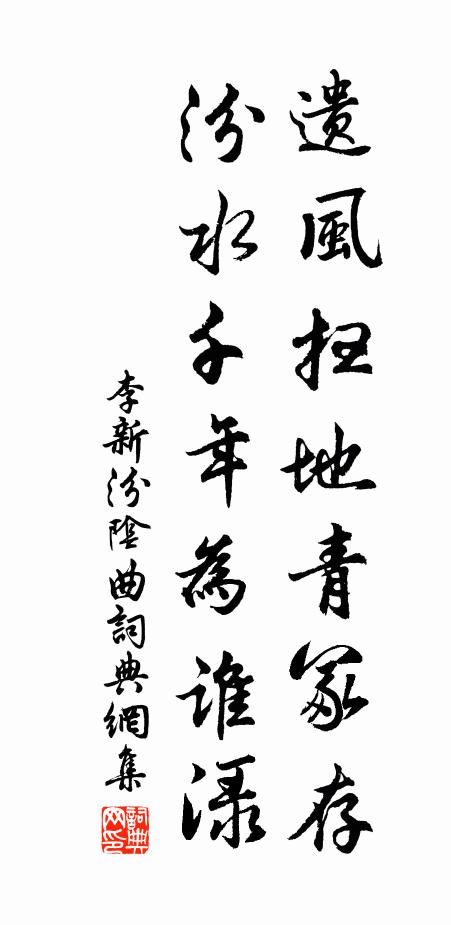 遺風掃地青冢存
汾水千年為誰淥
李新汾陰曲詞典網集
詞典網印